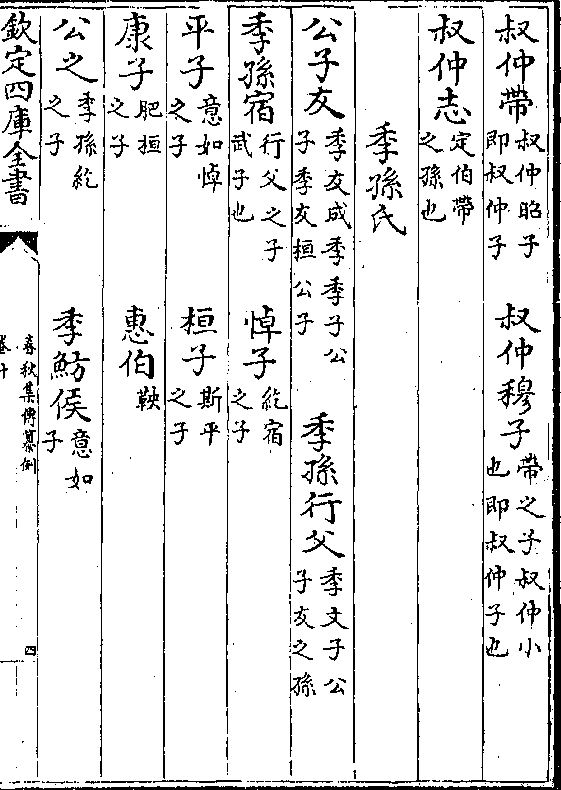 叔仲帶叔仲昭子即叔仲子　叔仲穆子帶之子叔仲小也即叔仲子也
叔仲志定伯帶之孫也
季孫氏
公子友季友成季季子公子季友桓公子　季孫行父季文子公子友之孫
季孫宿行父之子武子也　悼子紇宿之子
平子意如悼之子　桓子斯平之子
康子肥桓之子　惠伯鞅
公之季孫紇之子　季魴侯意如子
欽定四庫全書　春秋集傳纂例卷十　四